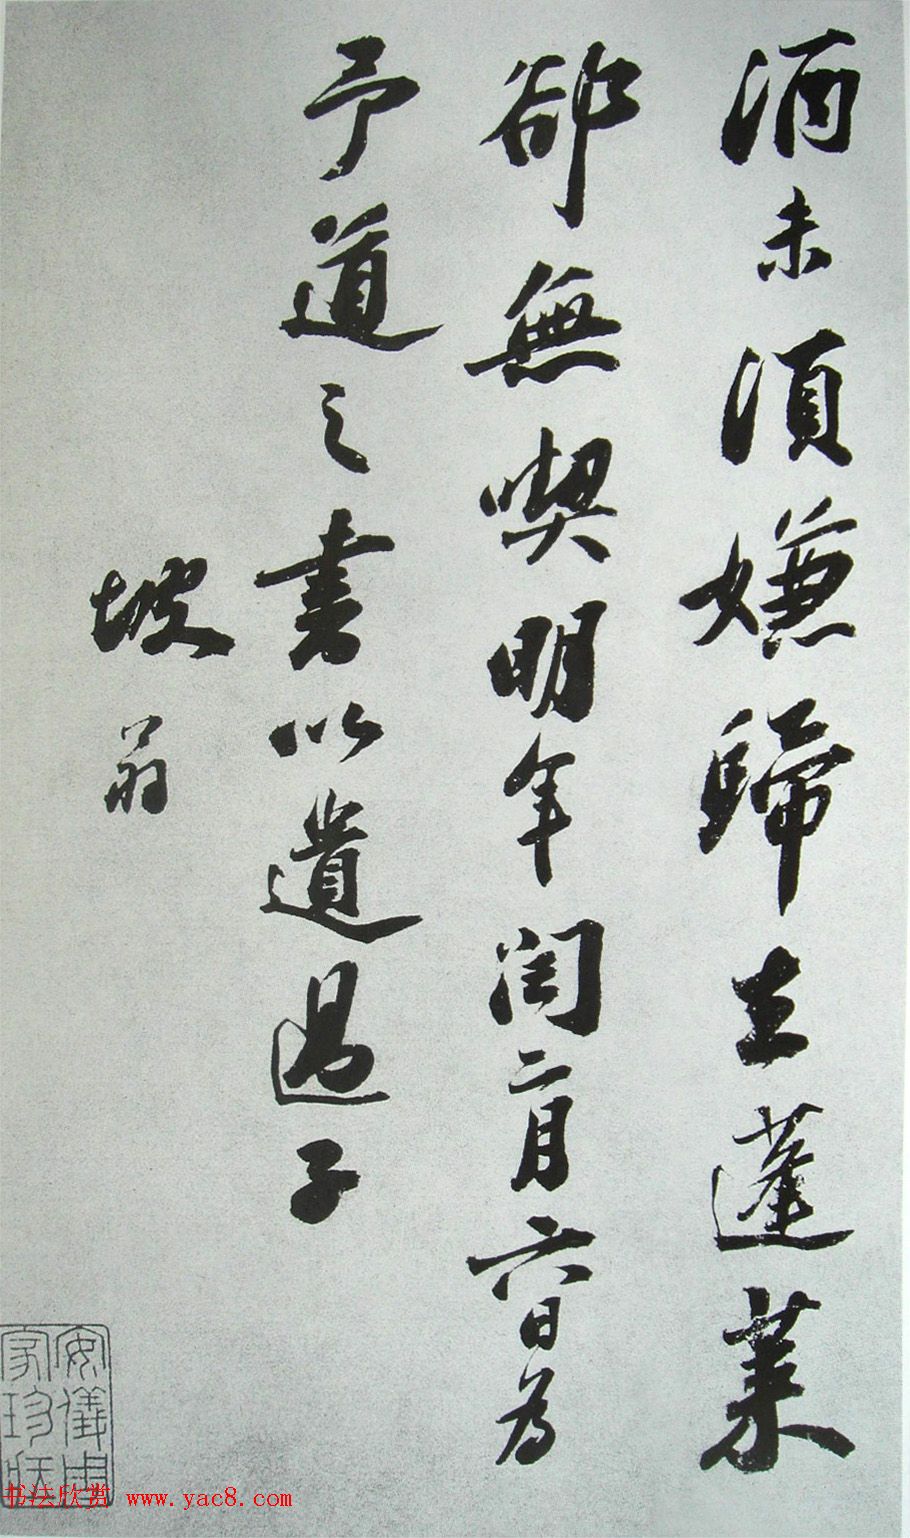 酒未須嫌歸去蓬萊
卻無喫明年閏二月六日為
予道之書以遺過子
坡翁
安儀周
家珍藏
书法欣赏 www.yac8.com